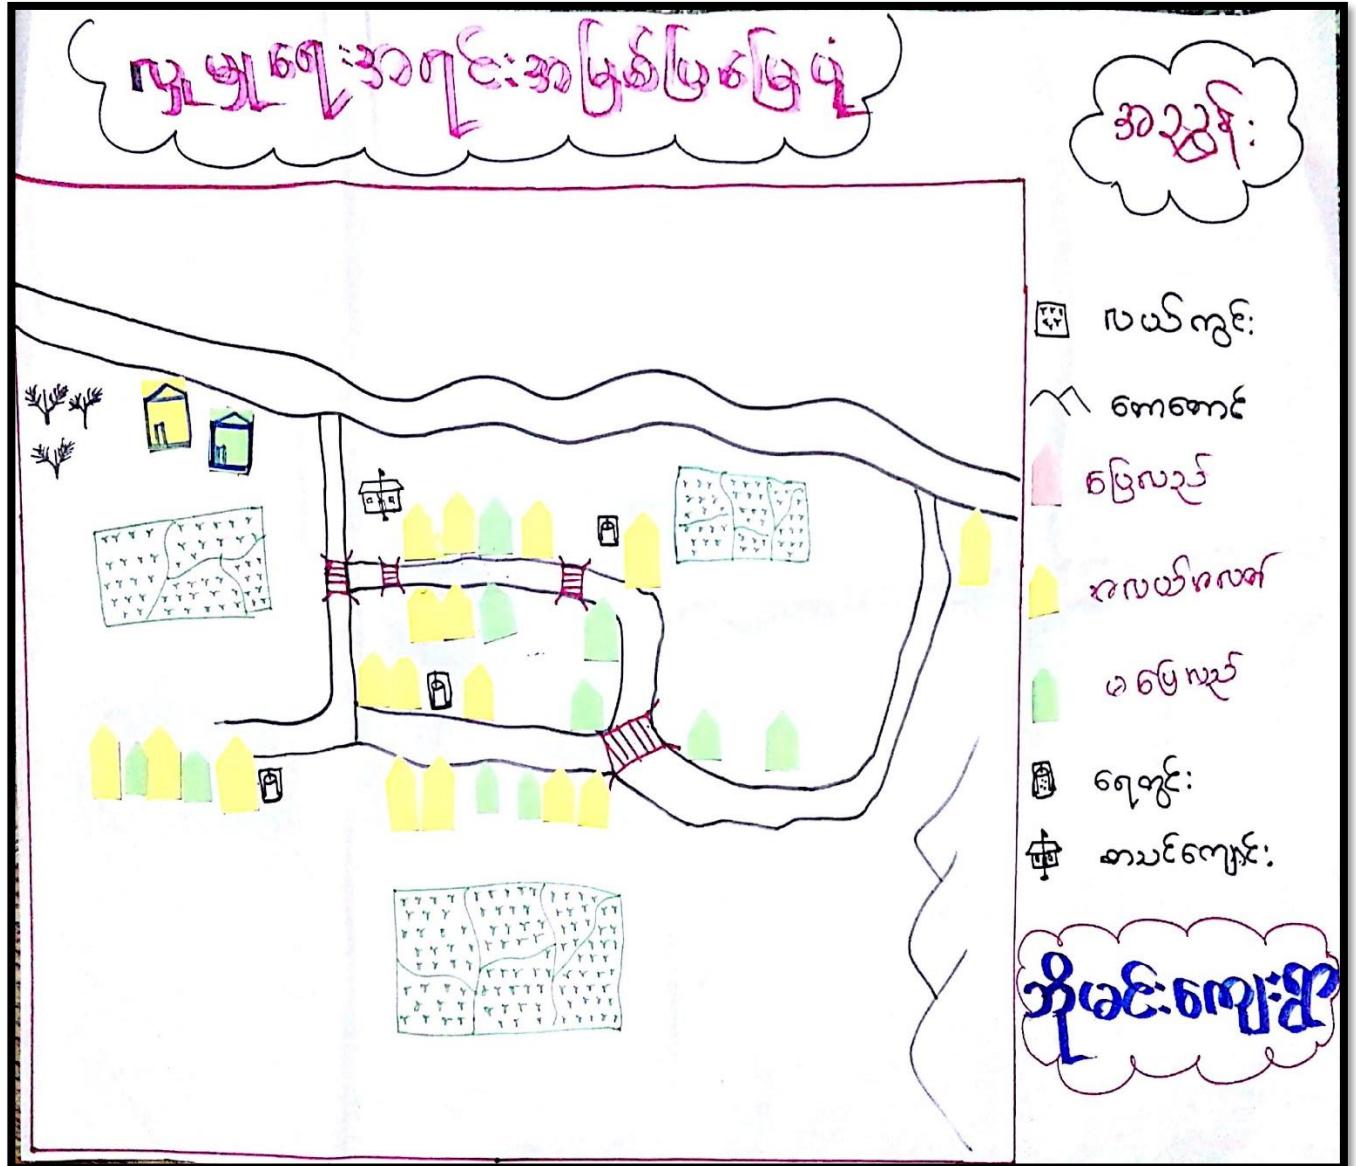 လူမှုရေးအရင်းအမြစ်ပြမြေပုံ
အညွှန်း
လယ်ကွင်း
တောတောင်
ပြေလည်
အလယ်အလတ်
မပြေလည်
ရေတွင်း
စာသင်ကျောင်း
ဘိုမင်းကျေးရွာ